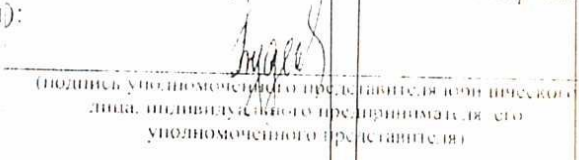 ):
(подпись уполномоченного представителя юридического
лица, индивидуального предпринимателя, его
уполномоченного представителя)